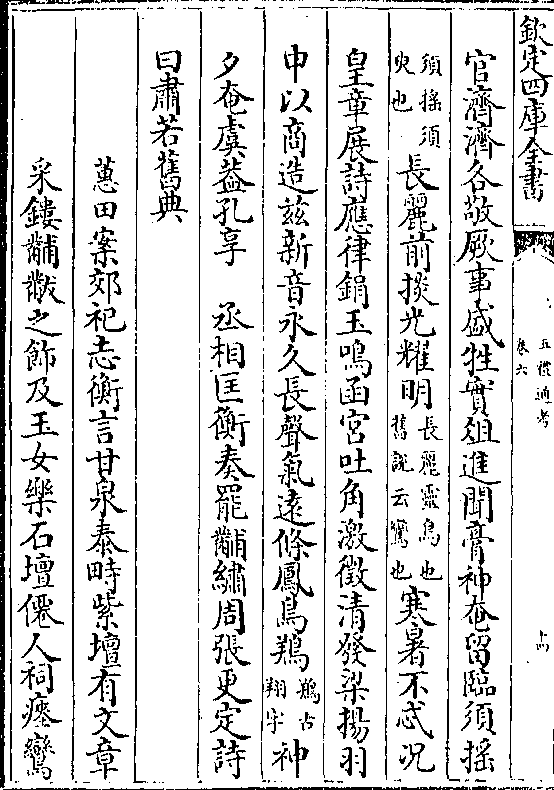 欽定四庫全書
五禮通考
卷六
官濟濟各敬厥事盛牲實俎進聞膏神奄留臨須搖
須搖須臾也長麗前掞光耀明長麗靈鳥也舊說云鸞也寒暑不忒况
皇章展詩應律鋗玉鳴函宮吐角激徵清發梁揚羽
申以商造兹新音永久長聲氣遠條鳳鳥鶈鶈古翔字神
夕奄虞蓋孔享　丞相匡衡奏罷黼繡周張更定詩
曰肅若舊典
蕙田案郊祀志衡言甘泉泰畤紫壇有文章
采鏤黼黻之飾及玉女樂石壇僊人祠瘞鸞